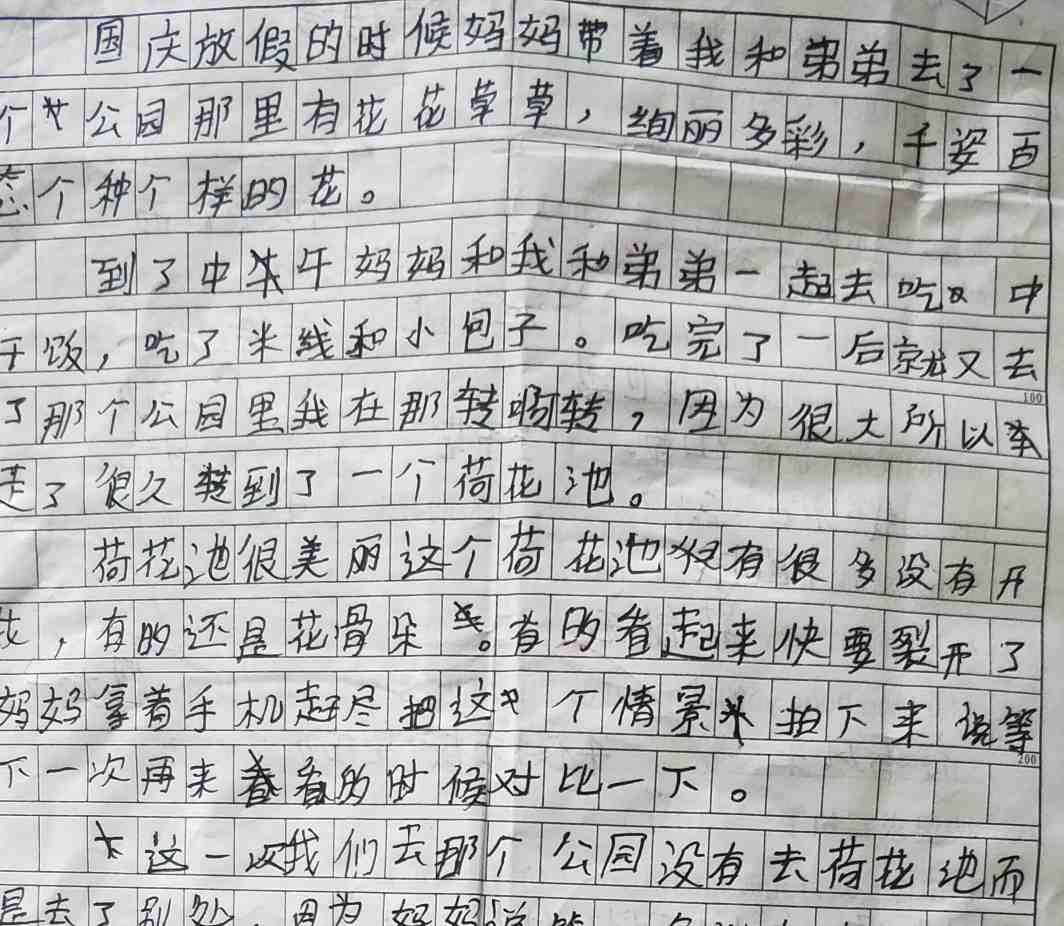 国庆放假的时候妈妈带着我和弟弟去了一
个公园那里有花花草草，绚丽多彩，千姿百
态个种个样的花。
到了中午妈妈和我和弟弟一起去吃中
午饭，吃了米线和小包子。吃完了一后就又去
了那个公园里我在那转啊转，因为很大所以
走了很久转到了一个荷花池。
荷花池很美丽这个荷花池很有很多没有开
花，有的还是花骨朵。有的看起来快要裂开了
妈妈拿着手机赶尽把这个情景拍下来说等
下一次再来看的时候对比一下。
这一次我们去那个公园没有去荷花池而
是去了别处，因为妈妈说
100
200